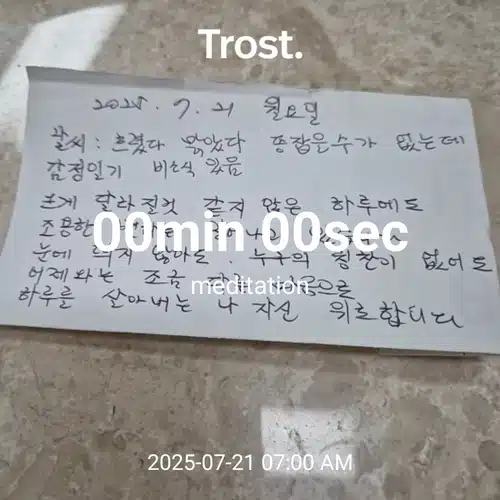 Trost.
2025. 7. 21 월요일
날씨: 흐렸다 맑았다 종잡을수가 없는데
감정인기 비소식 있음
크게 달라질것 같지 않은 하루에도
조용한
00min 00sec
눈에 띄지 않아도. 누구의 칭찬이 없어도
meditation
어제와는 조금
하루를 살아내는 나 자신 위로합니다
2025-07-21 07:00 AM